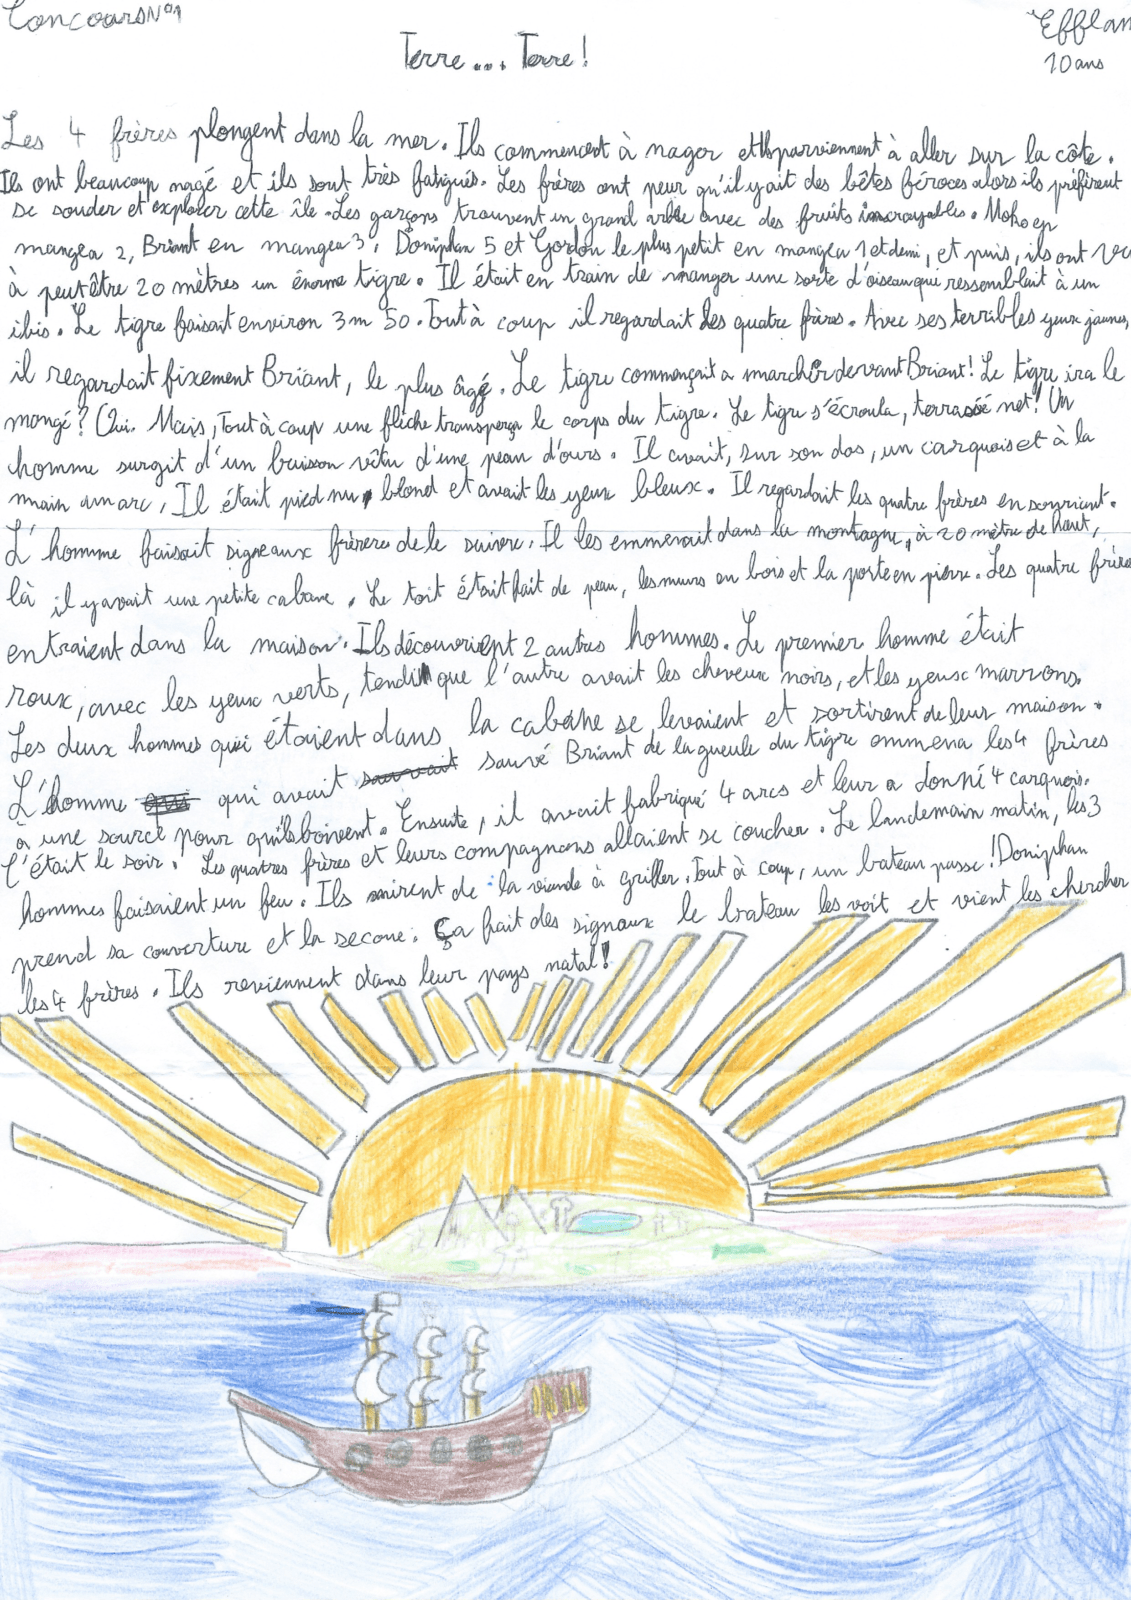 Concours N°1
Efflam
10 ans
Terre.... Terre!
Les 4 frères plongent dans la mer. Ils commencent à nager et ils parviennent à aller sur la côte.
Ils ont beaucoup nagé et ils sont très fatigués. Les frères ont peur qu'il y ait des bêtes féroces alors ils préfèrent
se souder et explorer cette île. Les garçons trouvent un grand arbre avec des fruits incroyables. Moko en
mangea 2, Briant en mangea 3, Doniphan 5 et Gordon le plus petit en mangea 1 et demi, et puis, ils ont vu
à peut être 20 mètres un énorme tigre. Il était en train de manger une sorte d'oiseau qui ressemblait à un
ibis. Le tigre faisait environ 3m 50. Tout à coup il regardait les quatre frères. Avec ses terribles yeux jaunes,
il regardait fixement Briant, le plus âgé. Le tigre commençait a marcher devant Briant! Le tigre ira le
mangé? Oui. Mais, Tout à coup une flèche transperça le corps du tigre. Le tigre s'écroula, terrassé net! Un
homme surgit d'un buisson vêtu d'une peau d'ours. Il avait, sur son dos, un carquois et à la
main un arc, Il était pied nu, blond et avait les yeux bleux. Il regardait les quatre frères en souriant.
L'homme faisait signe aux frères de le suivre. Il les emmenait dans la montagne, à 20 mètre de haut,
là il y avait une petite cabane. Le toit était fait de peau, les murs en bois et la porte en pierre. Les quatre frères
entraient dans la maison. Ils découvrirent 2 autres hommes. Le premier homme était
roux, avec les yeux verts, tendit que l'autre avait les cheveux noirs, et les yeux marrons.
Les deux hommes qui étaient dans la cabane se levaient et sortirent de leur maison.
L'homme qui avait sauvé Briant de la gueule du tigre emmena les 4 frères
à une source pour qu'ils boivent. Ensuite, il avait fabriqué 4 arcs et leur a donné 4 carquois.
C'était le soir. Les quatres frères et leurs compagnons allaient se coucher. Le landemain matin, les 3
hommes faisaient un feu. Ils mirent de la viande à griller. Tout à coup, un bateau passe! Doniphan
prend sa couverture et la secoue. Ça fait des signaux le bateau les voit et vient les chercher
les 4 frères. Ils reviennent dans leur pays natal!